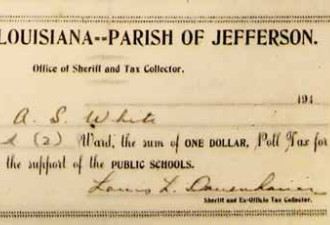 LOUISIANA--PARISH OF JEFFERSON.
Office of Sheriff and Tax Collector.
191
A. S. White
(2) Ward, the sum of ONE DOLLAR, Poll Tax for
the support of the PUBLIC SCHOOLS.
Louis L.
Sheriff and Ex-Officio Tax Collector.